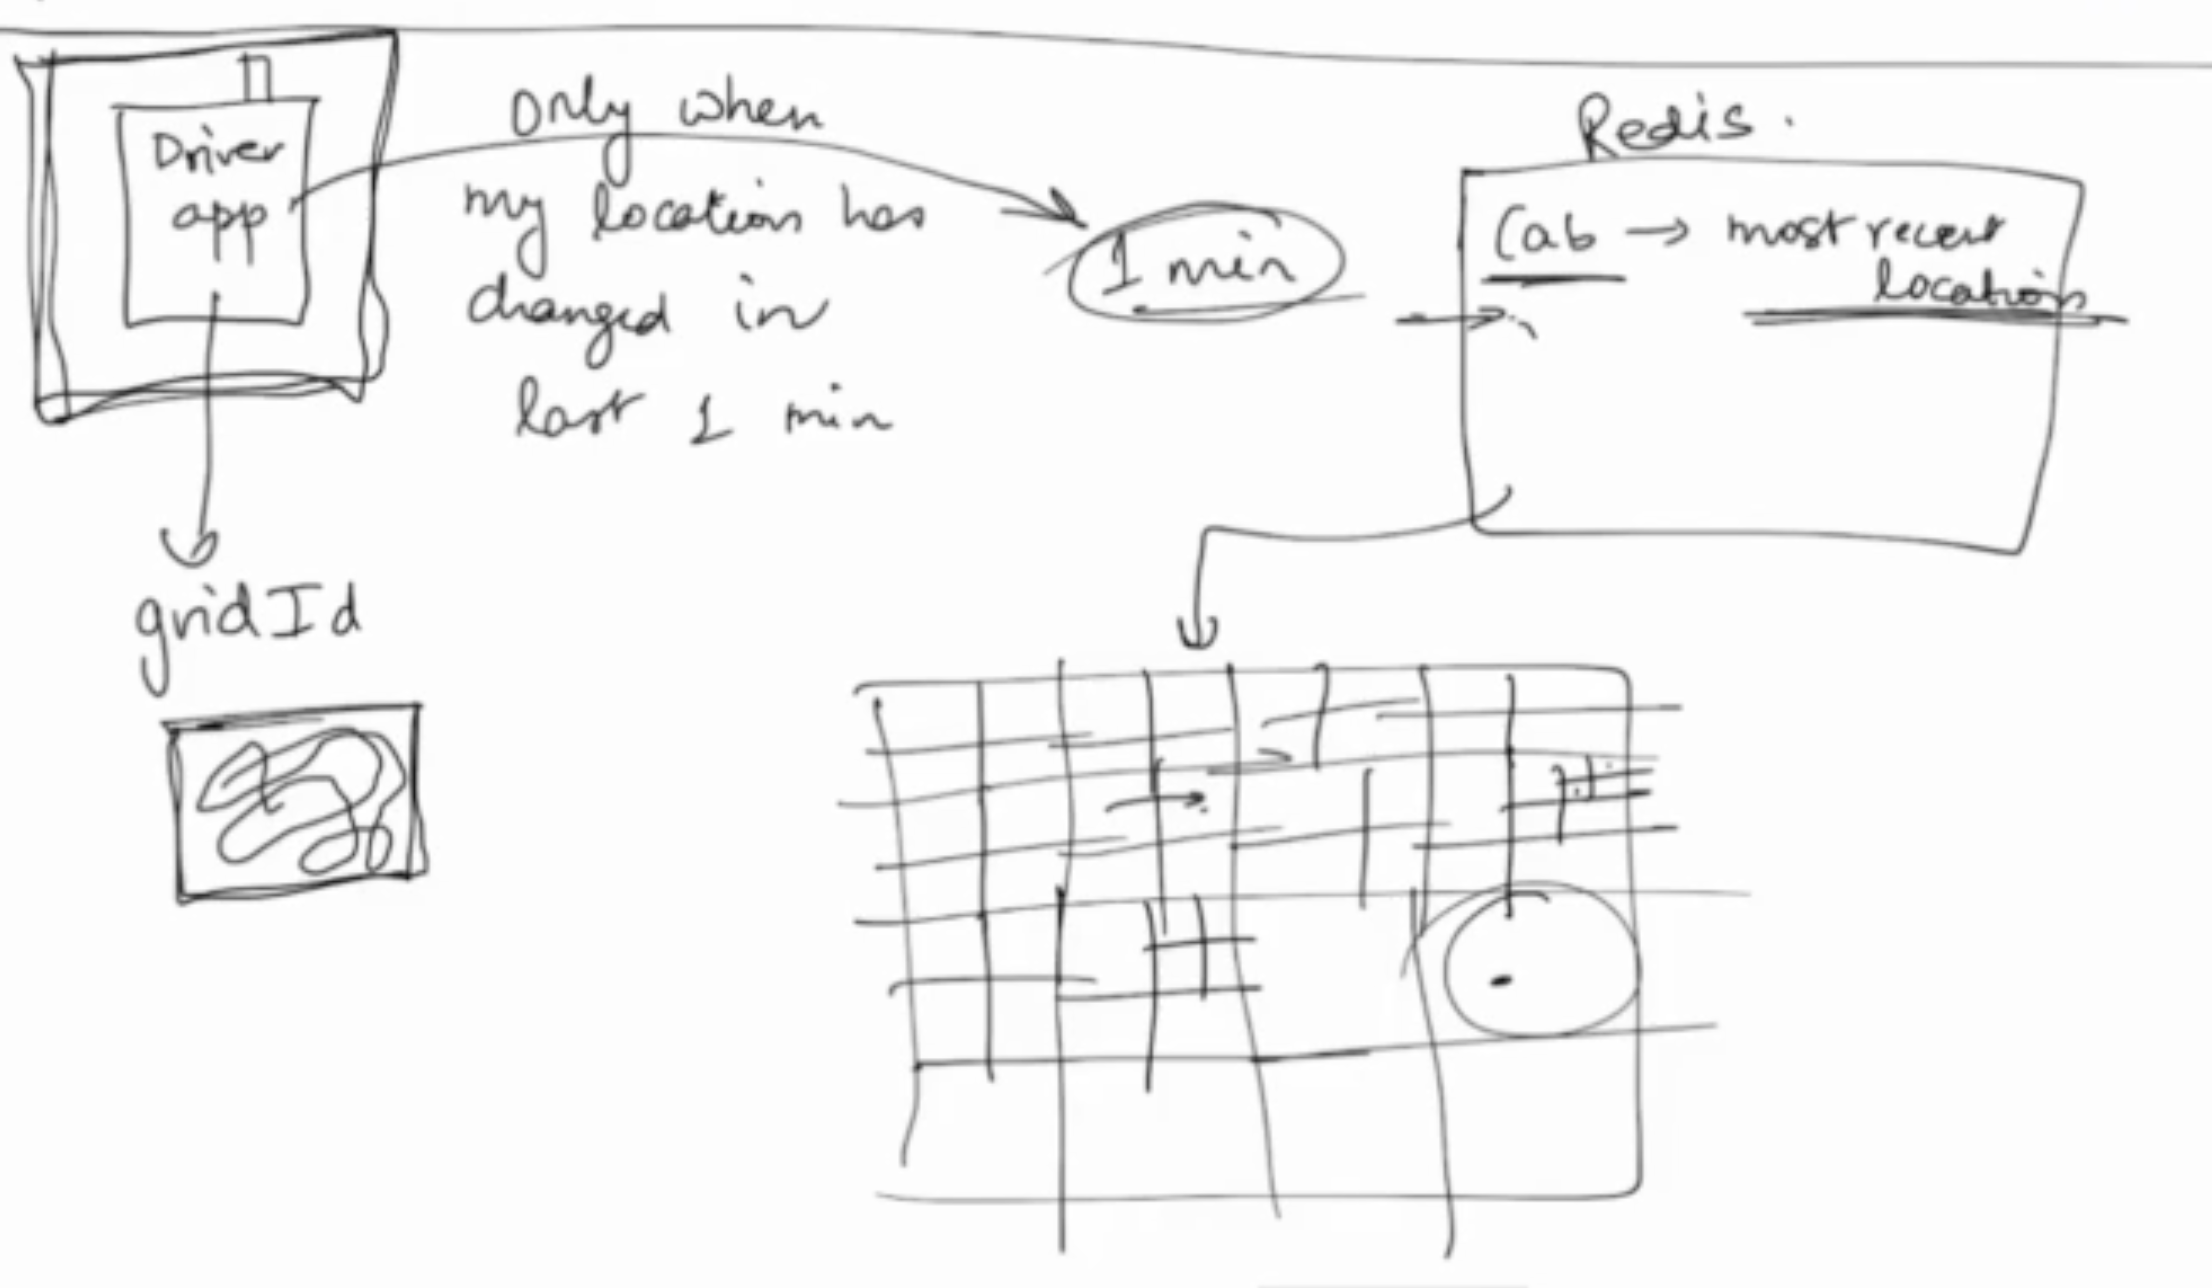 Driver
app
only when
my location has
changed in
last 1 min
1 min
Redis.
Cab → most recent
location
gridId